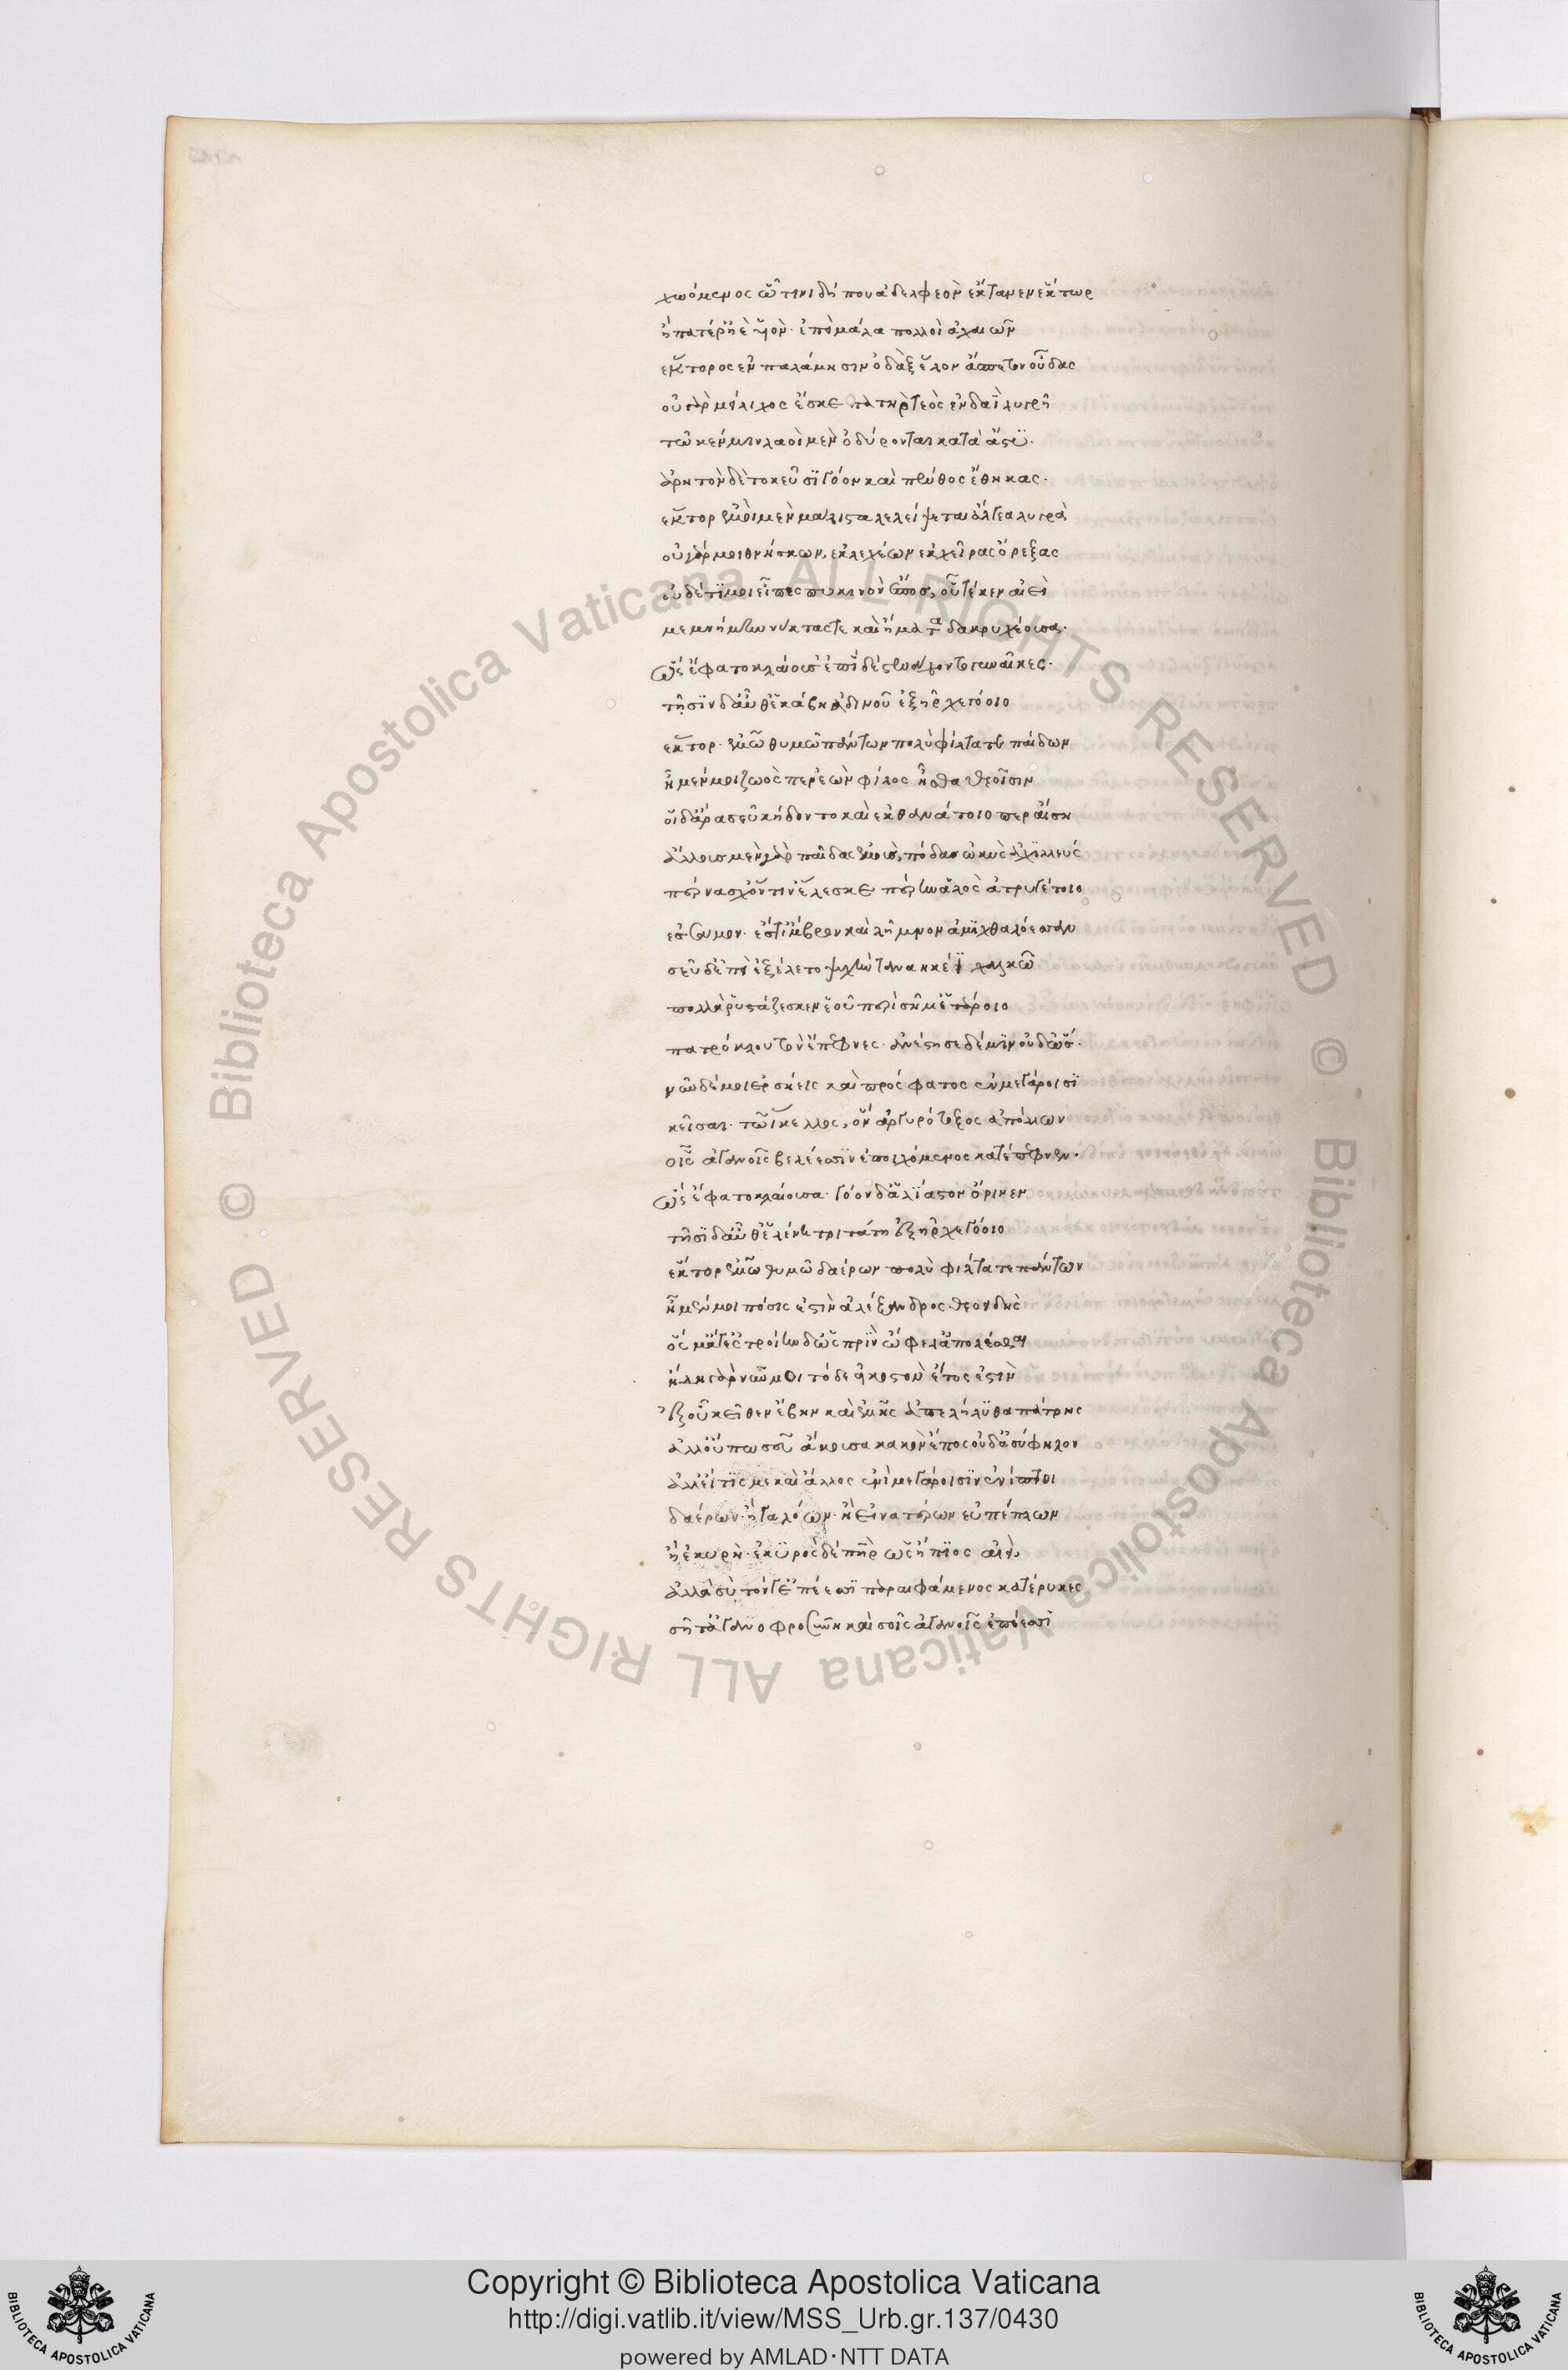 χωόμενος ᾧ τινι δή που ἀδελφεὸν ἔκτανεν ἕκτωρ
ἢ πατέρ' ἠὲ υἱόν· ἐπεὶ μάλα πολλοὶ ἀχαιῶν
ἕκτορος ἐν παλάμησιν ὀδὰξ ἕλον ἄσπετον οὖδας
οὐ γὰρ μείλιχος ἔσκε πατὴρ τεὸς ἐν δαῒ λυγρῆ
τῶ κέν μιν λαοὶ μὲν ὀδύρονται κατὰ ἄστυ·
ἀρητὸν δὲ τοκεῦσι γόον καὶ πένθος ἔθηκας·
ἕκτορ ἐμοὶ μὲν μάλιστα λελείψεται ἄλγεα λυγρὰ
οὐ γάρ μοι θνήσκων, ἐκ λεχέων ἐκ χεῖρας ὄρεξας
οὐδέ τί μοι εἶπες πυκινὸν ἔπος, οὗτέ κεν αἰεὶ
μεμνήμην νύκτας τε καὶ ἤματα δακρυχέουσα·
ὣς ἔφατο κλαίουσ' ἐπὶ δὲ στενάχοντο γυναῖκες·
τῆσιν δ' αὖθ' ἑκάβη ἀδινοῦ ἐξῆρχε γόοιο
ἕκτορ· ἐμῶ θυμῶ πάντων πολὺ φίλτατε παίδων
ἦ μέν μοι ζωός περ ἐὼν φίλος ἦσθα θεοῖσιν
οἱ δ' ἄρα σεῦ κήδοντο καὶ ἐν θανάτοιο περ αἴση
ἄλλους μὲν γὰρ παῖδας ἐμοὺς, πόδας ὠκὺς ἀχιλλεύς
πέρνασχ' ὅντιν' ἕλεσκε πέρην ἁλὸς ἀτρυγέτοιο
ἐς σάμον· ἔς τ' ἴμβρον καὶ λῆμνον ἀμιχθαλόεσσαν
σεῦ δ' ἐπεὶ ἐξέλετο ψυχὴν ταναηκέϊ χαλκῶ
πολλὰ ῥυστάζεσκεν ἑοῦ περὶ σῆμ' ἑτάροιο
πατρόκλου τὸν ἔπεφνες· ἀνέστησε δέ μιν οὐδ' ὧς·
νῦν δέ μοι ἑρσήεις καὶ πρόσφατος ἐν μεγάροισι
κεῖσαι· τῶ ἴκελλος, ὅν ἀργυρότοξος ἀπόλλων
οἷς ἀγανοῖς βελέεσσιν ἐποιχόμενος κατέπεφνεν·
ὣς ἔφατο κλαίουσα· γόον δ' ἀλίαστον ὄρινεν
τῆσι δ' αὖθ' ἑλένη τριτάτη ἐξῆρχε γόοιο
ἕκτορ ἐμῶ θυμῶ δαέρων πολὺ φίλτατε πάντων
ἦ μέν μοι πόσις ἐστὶν ἀλέξανδρος θεοειδὴς
ὅς μ' ἄγε τροίην δ' ὡς πρὶν ὤφελ' ἀπολέσθαι
ἤδη γὰρ νῦν μοι τόδε εἰκοστὸν ἔτος ἐστὶν
ἐξ οὗ κεῖθεν ἔβην καὶ ἐμῆς ἀπελήλυθα πάτρης
ἀλλ' οὔπω σοῦ ἄκουσα κακὸν ἔπος οὐδ' ἀσύφηλον
ἀλλ' εἴ τίς με καὶ ἄλλος ἐνὶ μεγάροισιν ἐνίπτοι
δαέρων· ἢ γαλόων· ἢ εἰνατέρων εὐπέπλων
ἢ ἑκυρὴ· ἑκυρὸς δὲ πατὴρ ὣς ἤπιος αἰεὶ,
ἀλλὰ σὺ τόν γ' ἐπέεσσι παραιφάμενος κατέρυκες
σῆ τ' ἀγανοφροσύνη καὶ σοῖς ἀγανοῖς ἐπέεσσι
© Biblioteca Apostolica Vaticana ALL RIGHTS RESERVED
© Biblioteca Apostolica Vaticana ALL RIGHTS RESERVED
BIBLIOTECA APOSTOLICA VATICANA
Copyright © Biblioteca Apostolica Vaticana
http://digi.vatlib.it/view/MSS_Urb.gr.137/0430
powered by AMLAD·NTT DATA
BIBLIOTECA APOSTOLICA VATICANA